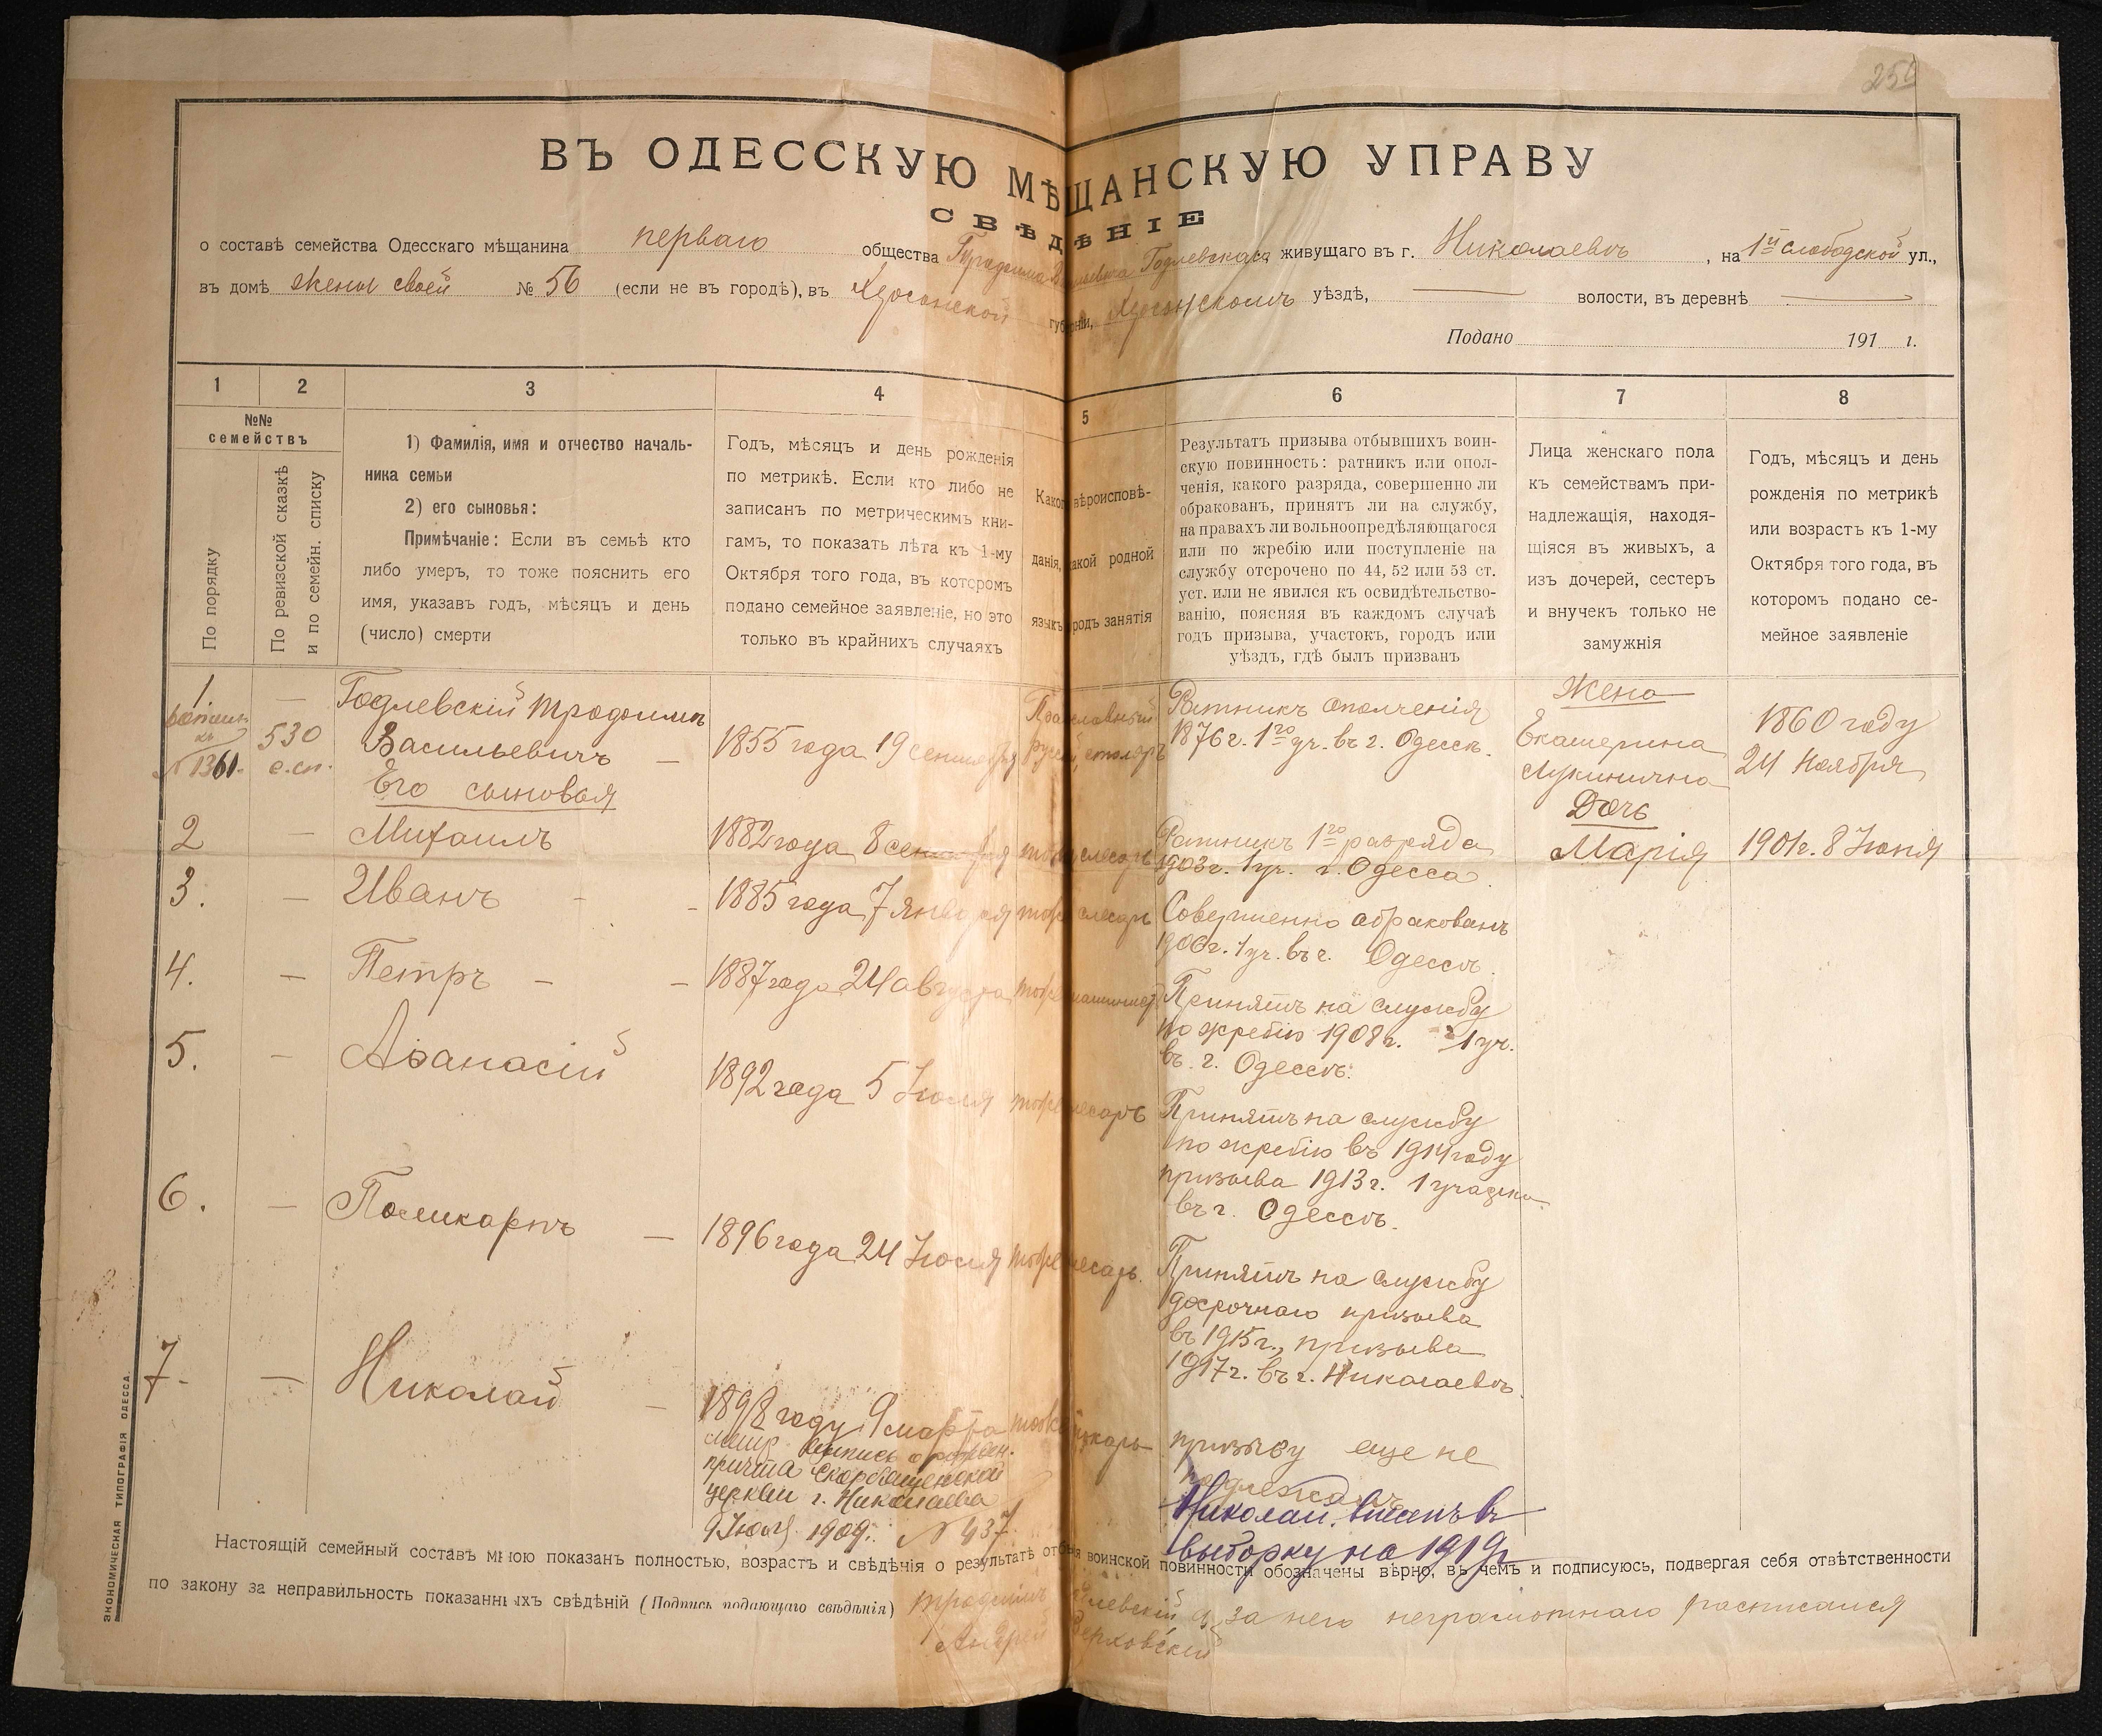 ВЪ ОДЕССКУЮ МѢЩАНСКУЮ УПРАВУ
СВѢДѢНІЕ
о составѣ семейства Одесскаго мѣщанина перваго общества Годлевскаго живущаго въ г. Николаевѣ, на 1й слободской ул.,
въ домѣ жены своей № 56 (если не въ городѣ), въ Херсонской губерніи, Херсонскомъ уѣздѣ, — волости, въ деревнѣ —
Подано 191 г.
1 2 3 4 5 6 7 8
№№
семействъ
По порядку
По ревизской сказкѣ
и по семейн. списку
1) Фамилія, имя и отчество началь-
ника семьи
2) его сыновья:
Примѣчаніе: Если въ семьѣ кто
либо умеръ, то тоже пояснить его
имя, указавъ годъ, мѣсяцъ и день
(число) смерти
Годъ, мѣсяцъ и день рожденія
по метрикѣ. Если кто либо не
записанъ по метрическимъ кни-
гамъ, то показать лѣта къ 1-му
Октября того года, въ которомъ
подано семейное заявленіе, но это
только въ крайнихъ случаяхъ
Какого вѣроисповѣ-
данія, какой родной
языкъ родъ занятія
Результатъ призыва отбывшихъ воин-
скую повинность: ратникъ или опол-
ченія, какого разряда, совершенно ли
обракованъ, принятъ ли на службу,
на правахъ ли вольноопредѣляющагося
или по жребію или поступленіе на
службу отсрочено по 44, 52 или 53 ст.
уст. или не явился къ освидѣтельство-
ванію, поясняя въ каждомъ случаѣ
годъ призыва, участокъ, городъ или
уѣздъ, гдѣ былъ призванъ
Лица женскаго пола
къ семействамъ при-
надлежащія, находя-
щіяся въ живыхъ, а
изъ дочерей, сестеръ
и внучекъ только не
замужнія
Годъ, мѣсяцъ и день
рожденія по метрикѣ
или возрастъ къ 1-му
Октября того года, въ
которомъ подано се-
мейное заявленіе
1
№ 1361.
—
530
с.сп.
Годлевскій Трофимъ
Васильевичъ —
Его сыновья
1855 года 19 сентября
Православный
русскій, столяръ
Ратникъ ополченія
1876 г. 1го уч. въ г. Одесск.
Жена
Екатерина
Лукинична
1860 году
24 Ноября
2 — Михаилъ
1882 года 8 сентября тоже слесарь
Ратникъ 1го разряда
1903 г. 1 уч. г. Одесса.
Дочь
Марія 1901 г. 8 Іюня
3. — Иванъ -
1885 года 7 января тоже слесарь
Совершенно обракованъ
1906 г. 1 уч. въ г. Одессѣ.
4. — Петръ —
1887 года 24 августа тоже машинист
Принятъ на службу
по жребію 1908 г. 1 уч.
въ г. Одессѣ.
5. — Аѳанасій
1892 года 5 Іюля тоже слесарь
Принятъ на службу
по жребію въ 1914 году
призыва 1913 г. 1 участка
въ г. Одессѣ.
6. — Поликарпъ —
1896 года 24 Іюля тоже слесарь.
Принятъ на службу
досрочнаго призыва
въ 1915 г., призыва
1917 г. въ г. Николаевѣ.
7. — Николай —
1898 году 9 марта
метр. выпись о рожден.
причта Скорбященской
церкви г. Николаева
9 Іюля 1909 г. № 437
призыву еще не
подлежалъ
Николай внесенъ въ
выборку на 1919 г.
Настоящій семейный составъ мною показанъ полностью, возрастъ и свѣдѣнія о результатѣ отбытія воинской повинности обозначены вѣрно, въ чемъ и подписуюсь, подвергая себя отвѣтственности
по закону за неправильность показанныхъ свѣдѣній (Подпись подающаго свѣдѣнія) Трофимъ Годлевскій а за него неграмотнаго расписался
Андрей
ЭКОНОМИЧЕСКАЯ ТИПОГРАФІЯ ОДЕССА.